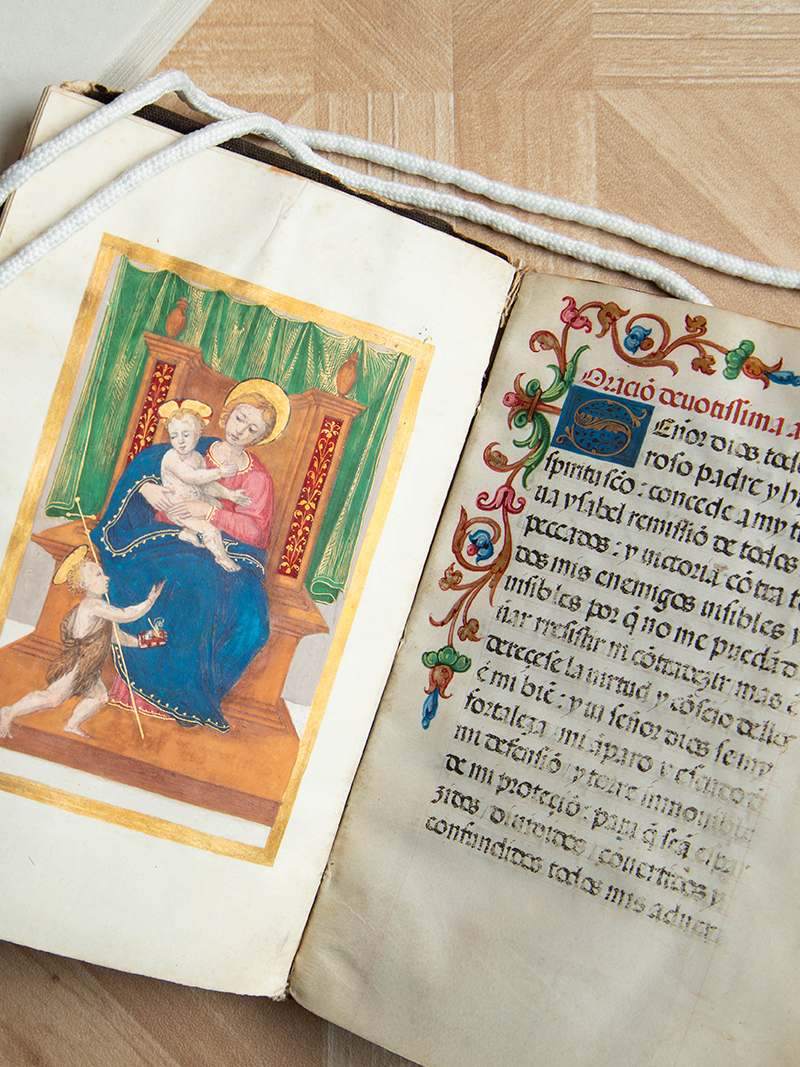 Oració deuotissima a
SEñor dios todo
roso padre y hi
spirituscō: concede a my ti
ua ysabel remissió de todos
peccados: y victoria cōtra to
dos mis enemigos visibles y
inuisibles por q̄ no me puedā d
ñar rresistir ni cōtradezir mas e
derecese la uirtud y cōseio dellos
ē mi biē: y tu señor dios se my
fortaleza mi āparo y escudo
mi defensió y torre inmouible
de mi proteció: para q̄ seā
zidos diuididos cōuertidos y
confundidos todos mis aduer